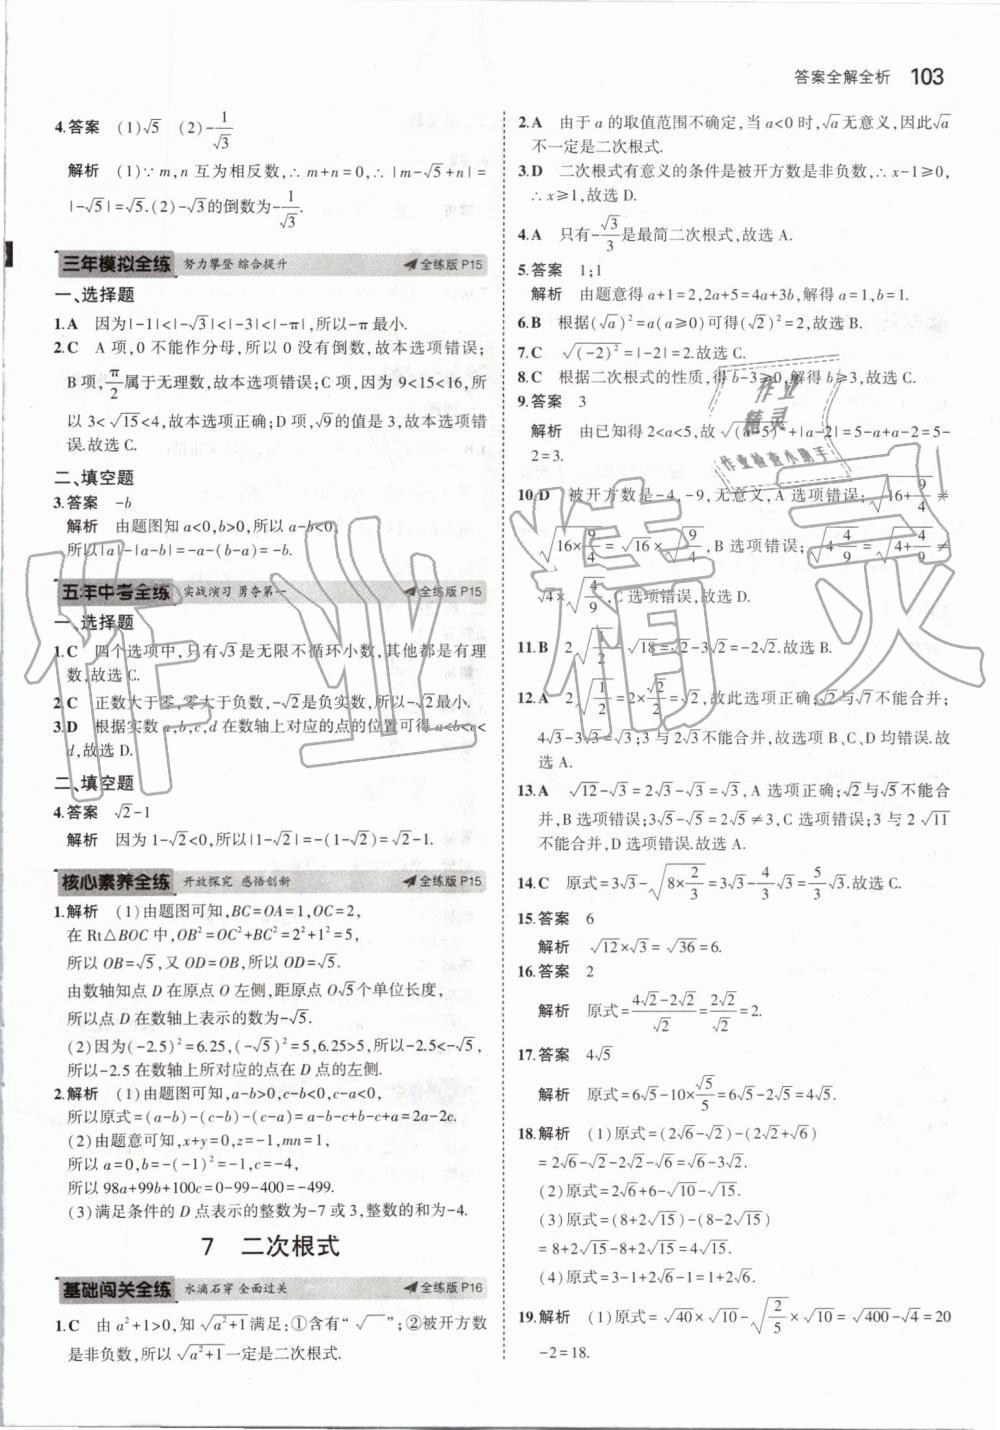 答案全解全析 103
4.答案 (1)√5 (2)-1/√3
解析 (1)∵m,n互为相反数,∴m+n=0,∴|m-√5+n|=
|-√5|=√5.(2)-√3的倒数为-1/√3.
三年模拟全练 努力攀登 综合提升 全练版P15
一、选择题
1.A 因为|-1|<|-√3|<|-3|<|-π|,所以-π最小.
2.C A项,0不能作分母,所以0没有倒数,故本选项错误;
B项,π/2属于无理数,故本选项错误;C项,因为9<15<16,所
以3<√15<4,故本选项正确;D项,√9的值是3,故本选项错
误.故选C.
二、填空题
3.答案 -b
解析 由题图知a<0,b>0,所以a-b<0,
所以|a|-|a-b|=-a-(b-a)=-b.
五年中考全练 实战演习 勇夺第一 全练版P15
一、选择题
1.C 四个选项中,只有√3是无限不循环小数,其他都是有理
数,故选C.
2.C 正数大于零,零大于负数,-√2是负实数,所以-√2最小.
3.D 根据实数a,b,c,d在数轴上对应的点的位置可得a<b<c<
d,故选D.
二、填空题
4.答案 √2-1
解析 因为1-√2<0,所以|1-√2|=-(1-√2)=√2-1.
核心素养全练 开放探究 感悟创新 全练版P15
1.解析 (1)由题图可知,BC=OA=1,OC=2,
在Rt△BOC中,OB²=OC²+BC²=2²+1²=5,
所以OB=√5,又OD=OB,所以OD=√5.
由数轴知点D在原点O左侧,距原点O√5个单位长度,
所以点D在数轴上表示的数为-√5.
(2)因为(-2.5)²=6.25,(-√5)²=5,6.25>5,所以-2.5<-√5,
所以-2.5在数轴上所对应的点在D点的左侧.
2.解析 (1)由题图可知,a-b>0,c-b<0,c-a<0,
所以原式=(a-b)-(c-b)-(c-a)=a-b-c+b-c+a=2a-2c.
(2)由题意可知,x+y=0,z=-1,mn=1,
所以a=0,b=-(-1)²=-1,c=-4,
所以98a+99b+100c=0-99-400=-499.
(3)满足条件的D点表示的整数为-7或3,整数的和为-4.
7 二次根式
基础闯关全练 水滴石穿 全面过关 全练版P16
1.C 由a²+1>0,知√(a²+1)满足:①含有“√ ”;②被开方数
是非负数,所以√(a²+1)一定是二次根式.
2.A 由于a的取值范围不确定,当a<0时,√a无意义,因此√a
不一定是二次根式.
3.D 二次根式有意义的条件是被开方数是非负数,∴x-1≥0,
∴x≥1,故选D.
4.A 只有-√3/3是最简二次根式,故选A.
5.答案 1;1
解析 由题意得a+1=2,2a+5=4a+3b,解得a=1,b=1.
6.B 根据(√a)²=a(a≥0)可得(√2)²=2,故选B.
7.C √(-2)²=|-2|=2.故选C.
8.C 根据二次根式的性质,得b-3≥0,解得b≥3,故选C.
9.答案 3
解析 由已知得2<a<5,故√(a-5)²+|a-2|=5-a+a-2=5-
2=3.
10.D 被开方数是-4,-9,无意义,A选项错误;√(16+9/4)≠
√(16×9/4)=√16×√(9/4),B选项错误;√(4 4/9)=√(4+4/9)≠
√4×√(4/9),C选项错误.故选D.
11.B 2√(1/2)-√18=√2-3√2=-2√2.故选B.
12.A 2√(1/2)=2×√2/2=√2,故此选项正确;√2与√7不能合并;
4√3-3√3=√3;3与2√3不能合并,故选项B、C、D均错误.故
选A.
13.A √12-√3=2√3-√3=√3,A选项正确;√2与√5不能合
并,B选项错误;3√5-√5=2√5≠3,C选项错误;3与2√11
不能合并,D选项错误.故选A.
14.C 原式=3√3-√(8×2/3)=3√3-4/3√3=5/3√3.故选C.
15.答案 6
解析 √12×√3=√36=6.
16.答案 2
解析 原式=(4√2-2√2)/√2=2√2/√2=2.
17.答案 4√5
解析 原式=6√5-10×√5/5=6√5-2√5=4√5.
18.解析 (1)原式=(2√6-√2)-(2√2+√6)
=2√6-√2-2√2-√6=√6-3√2.
(2)原式=2√6+6-√10-√15.
(3)原式=(8+2√15)-(8-2√15)
=8+2√15-8+2√15=4√15.
(4)原式=3-1+2√6-√6=2+√6.
19.解析 (1)原式=√40×√10-√(2/5)×√10=√400-√4=20
-2=18.
作业精灵
作业检查小帮手
作业精灵